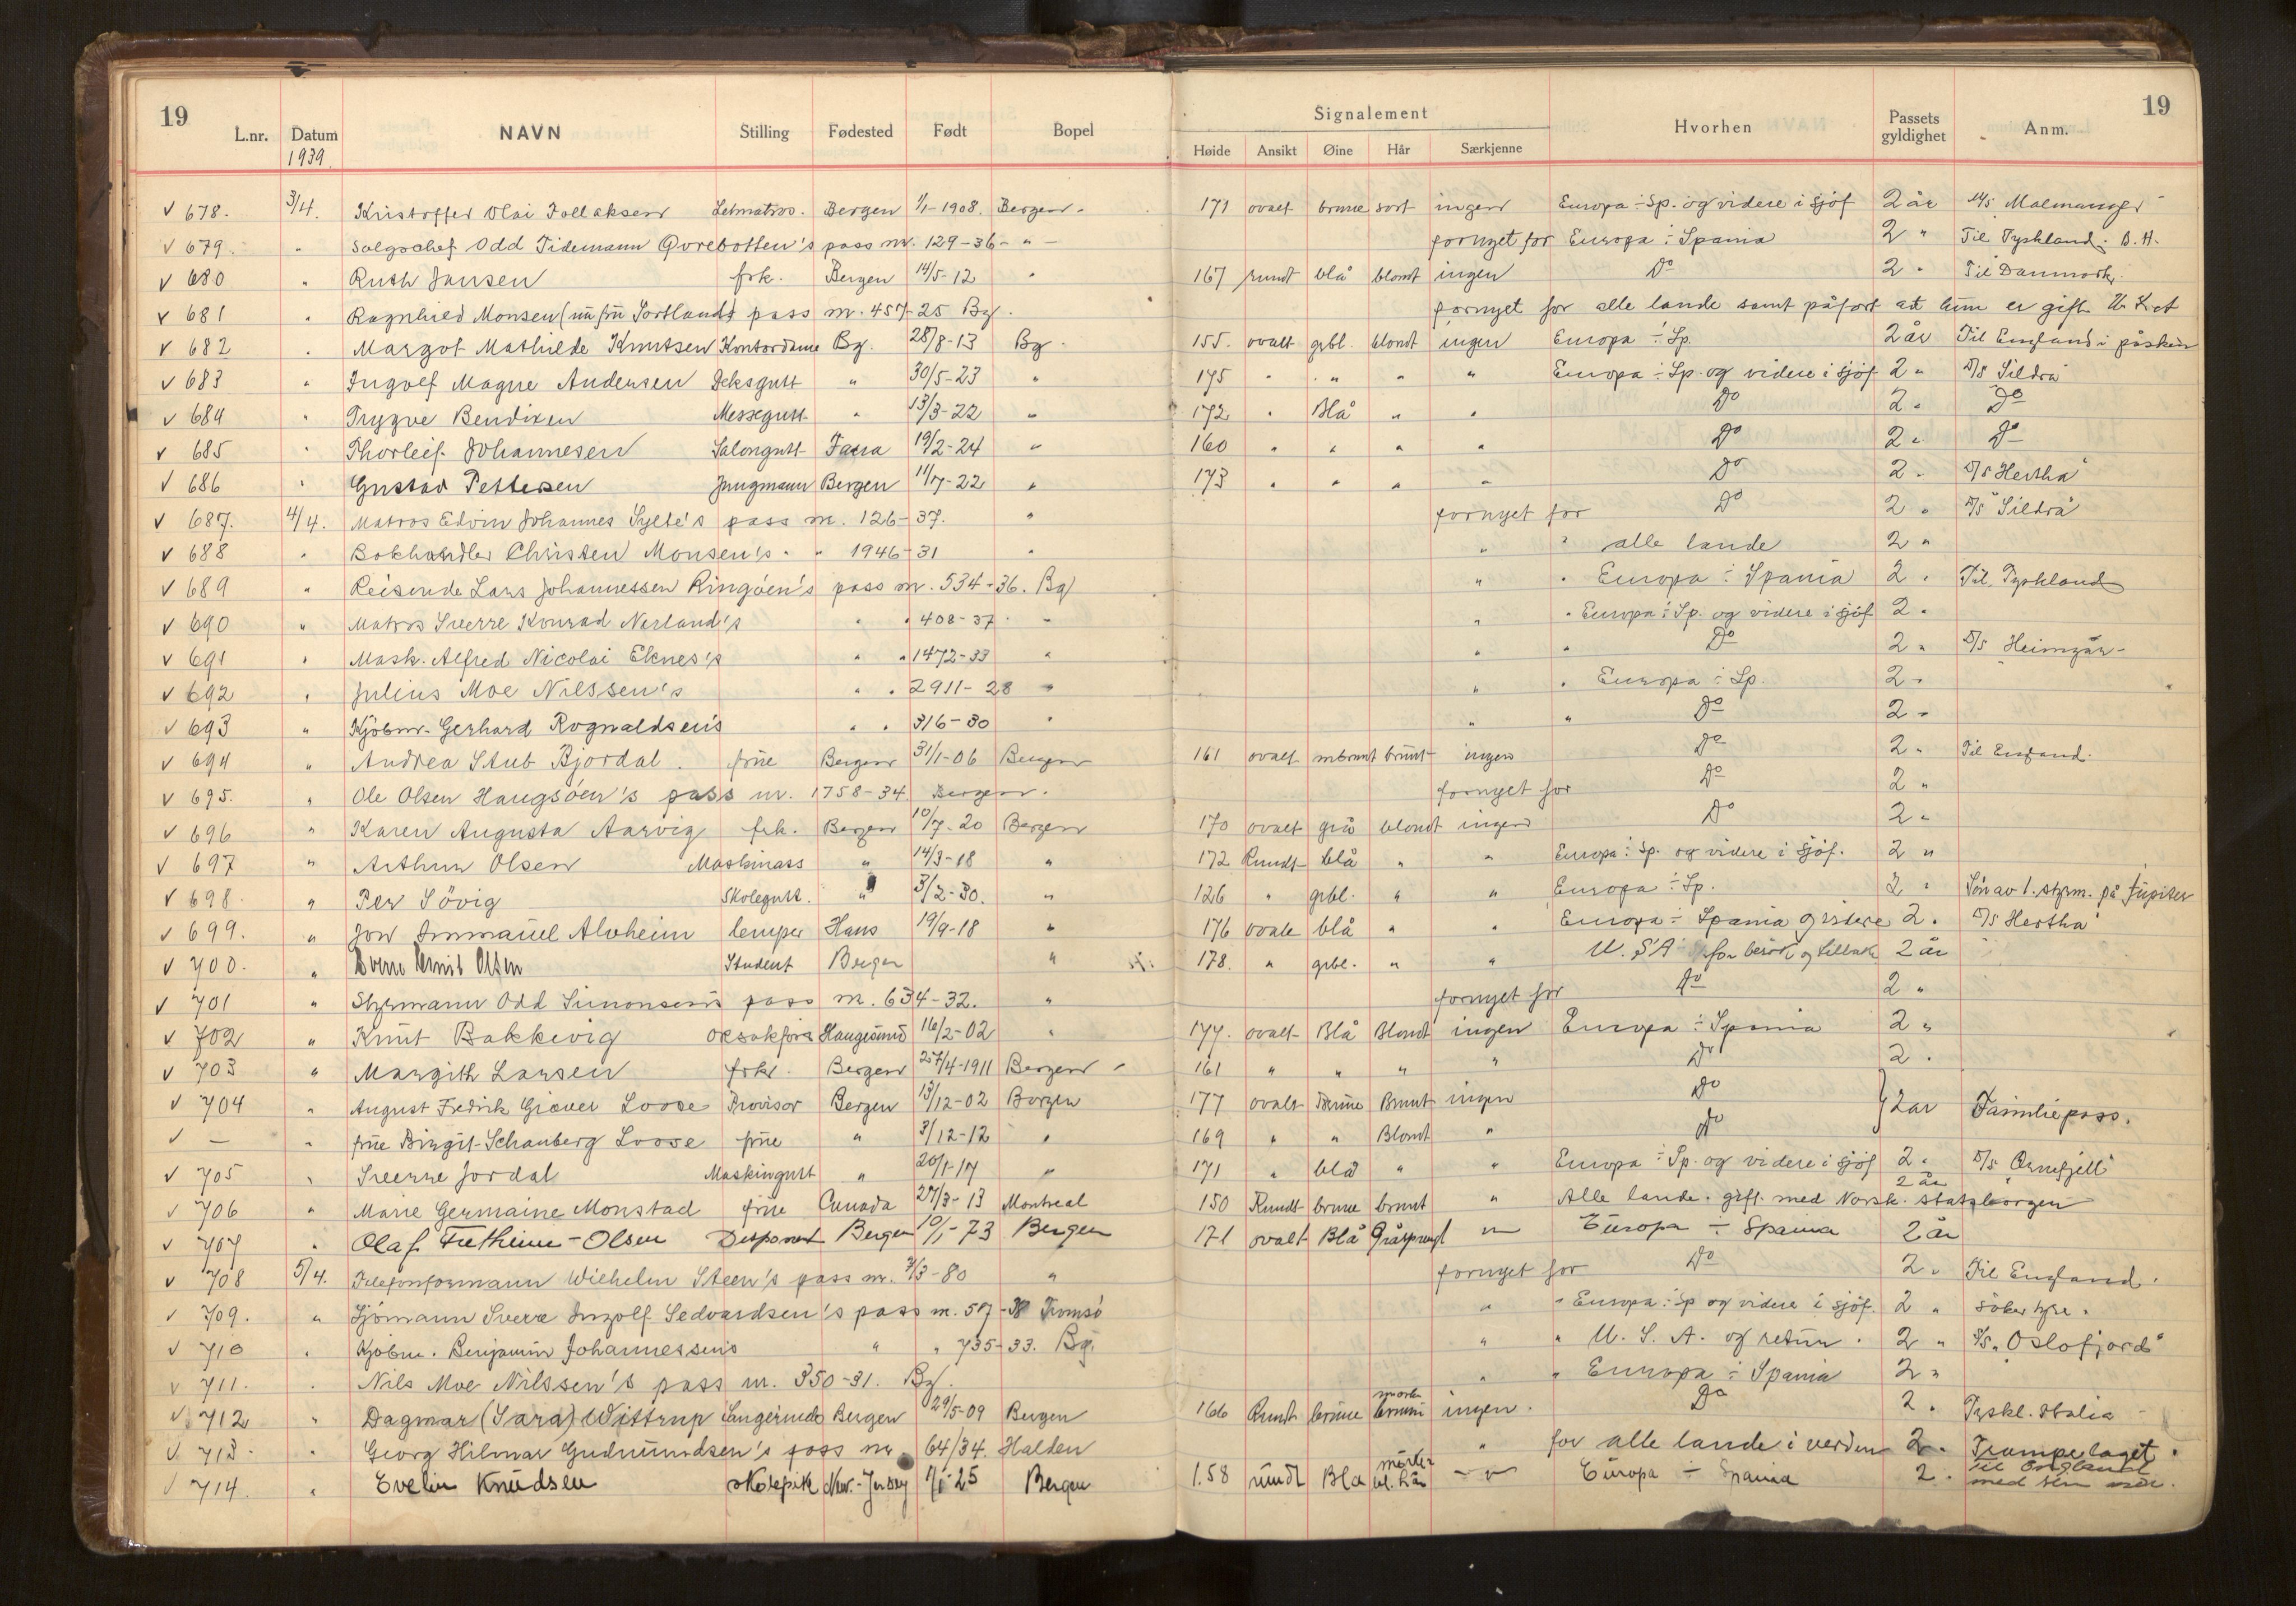 19 Signalement 19
L.nr. Datum NAVN Stilling Fødested Født Bopel Høide Ansikt Øine Hår Særkjenne Hvorhen Passets gyldighet Anm.
1939
v 678. 3/4. Kristoffer Olai Follaksen Letmatros. Bergen 1/1-1908. Bergen 171 ovalt brune sort ingen Europa ÷ Sp. og videre i sjöf 2 år M/S Malmanger
v 679. " Salgschef Odd Tidemann Qvrebotten's pass nr. 129-36 - " - fornyet for Europa ÷ Spania 2 " Til Tyskland.
v 680 " Ruth Jansen frk. Bergen 14/5-12 " 167 rundt blå blondt ingen Do 2 " Til Danmark.
v 681 " Ragnhild Monsen (nu fru Sortland) pass nr. 457-25 Bg. fornyet for alle lande samt påført at hun er gift
v 682 " Margot Mathilde Knutsen Kontordame Bg. 28/8-13 Bg. 155. ovalt grbl. blondt ingen Europa ÷ Sp. 2 år Til England i påsken
v 683 " Ingolf Magne Andersen Deksgutt " 30/5-23 " 175 " " " " Europa ÷ Sp. og videre i sjöf 2 " D/S Sildra
v 684 " Trygve Bendixen Messegutt " 13/3-22 " 172 " Blå " " Do 2 " Do
v 685 " Thorleif Johannesen Salongutt Fana 19/2-24 " 160 " " " " Do 2 " Do
v 686 " Gustav Pettersen Jungmann Bergen 11/7-22 " 173 " " " " Do 2 " D/S Hertha
v 687. 4/4. Matros Edvin Johannes Sylte's pass nr. 126-37. " fornyet for Do 2 " D/S Sildra
v 688 " Bokhandler Christen Monsen's " " 1946-31 " " " alle lande 2 "
v 689 " Reisende Lars Johannessen Ringöen's pass nr. 534-36. Bg " " Europa ÷ Spania 2 " Til Tyskland
v 690 " Matros Sverre Konrad Nerland's " " 408-37 " " " Europa ÷ Sp. og videre i sjöf 2 "
v 691 " Mask. Alfred Nicolai Eknes's " " 1472-33 " " " Do 2 " D/S Heimgar
v 692 " Julius Moe Nilssen's " " 2911-28 " " " Europa ÷ Sp. 2 "
v 693 " Kjöbm. Gerhard Rognaldsen's " " 316-30 " " " Do 2 "
v 694 " Andrea Stub Bjordal. frue Bergen 31/1-06 Bergen 161 ovalt mbrunt brunt ingen Do 2 " Til England.
v 695. " Ole Olsen Haugsöen's pass nr. 1758-34 Bergen. fornyet for Do 2 "
v 696 " Karen Augusta Aarvig frk. Bergen 10/7-20 Bergen 170 ovalt grå blondt ingen Do 2 "
v 697 " Arthur Olsen Maskinass " 14/3-18 " 172 Rundt blå " " Europa ÷ Sp. og videre i sjöf. 2 "
v 698. " Per Sövig Skolegutt. " 3/2-30. " 126 " grbl. " " Europa ÷ Sp. 2 " Sön av 1. styrm. på Jupiter
v 699. " Jon Immanuel Alvheim lemper Hans 19/9-18 " 176 ovale blå " " Europa ÷ Spania og videre 2 " D/S Hertha
v 700. " Olsen Student Bergen " 178. " grbl. " " U.S.A for besök og tilbake 2 år
v 701 " Styrmann Odd Simonsen's pass nr. 634-32. " fornyet for Do 2 "
v 702 " Knut Bakkevig Haugesund 16/2-02 " 177. ovalt Blå Blondt ingen Europa ÷ Spania 2 "
v 703 " Margith Larsen frk. Bergen 27/4-1911 Bergen 161 " " " " Do 2 "
v 704 " August Fredrik Giæver Loose Provisor Bergen 13/12-02 Bergen 177 ovalt Brune Brunt ingen Do } 2 år Familiepass.
v — " frue Birgit Schanberg Loose frue " 3/12-12 " 169 " " Blondt " Do
v 705 " Sverre Jordal Maskingutt " 20/1-17 " 171 " blå " " Europa ÷ Sp. og videre i sjöf 2 " D/S Ørnefjell
v 706 " Marie Germaine Monstad frue Canada 27/3-13 Montreal 150 Rundt brune brunt " Alle lande. gift med Norsk. statsborgen 2 år
v 707 " Olaf -Olsen Disponent Bergen 10/1-73 Bergen 171 ovalt Blå Gråsprengt " Europa ÷ Spania 2 år
v 708 5/4. Telefonformann Wilhelm Steen's pass nr. 9/3-80 " fornyet for Do 2 " Til England.
v 709. " Sjömann Sverre Ingolf Sedvardsen's pass nr. 57-38 Tromsö " " Europa ÷ Sp og videre i sjöf. 2 " söker hyre.
v 710 " Kjöbm. Benjamin Johannessen's " " 735-33. Bg. " " U.S.A. og retur. 2 " S/S "Oslofjord"
v 711. " Nils Moe Nilssen's pass nr. 350-31. Bg. " " Europa ÷ Spania 2 "
v 712 " Dagmar (Sara) Wittrup Sangerinde Bergen 29/5-09 Bergen 166 Rundt brune mørke brune ingen. Do 2 " Tyskl. Italia
v 713 " Georg Hilmar Gudmundsen's pass nr. 64/34. Halden " for alle lande i verden 2 " Trampelaget.
v 714. " Evelin Knudsen New-Jersey 1/1-25 Bergen 1.58 rundt Blå mørk bl. hår - " - Europa ÷ Spania 2 " Til England med sin mor.